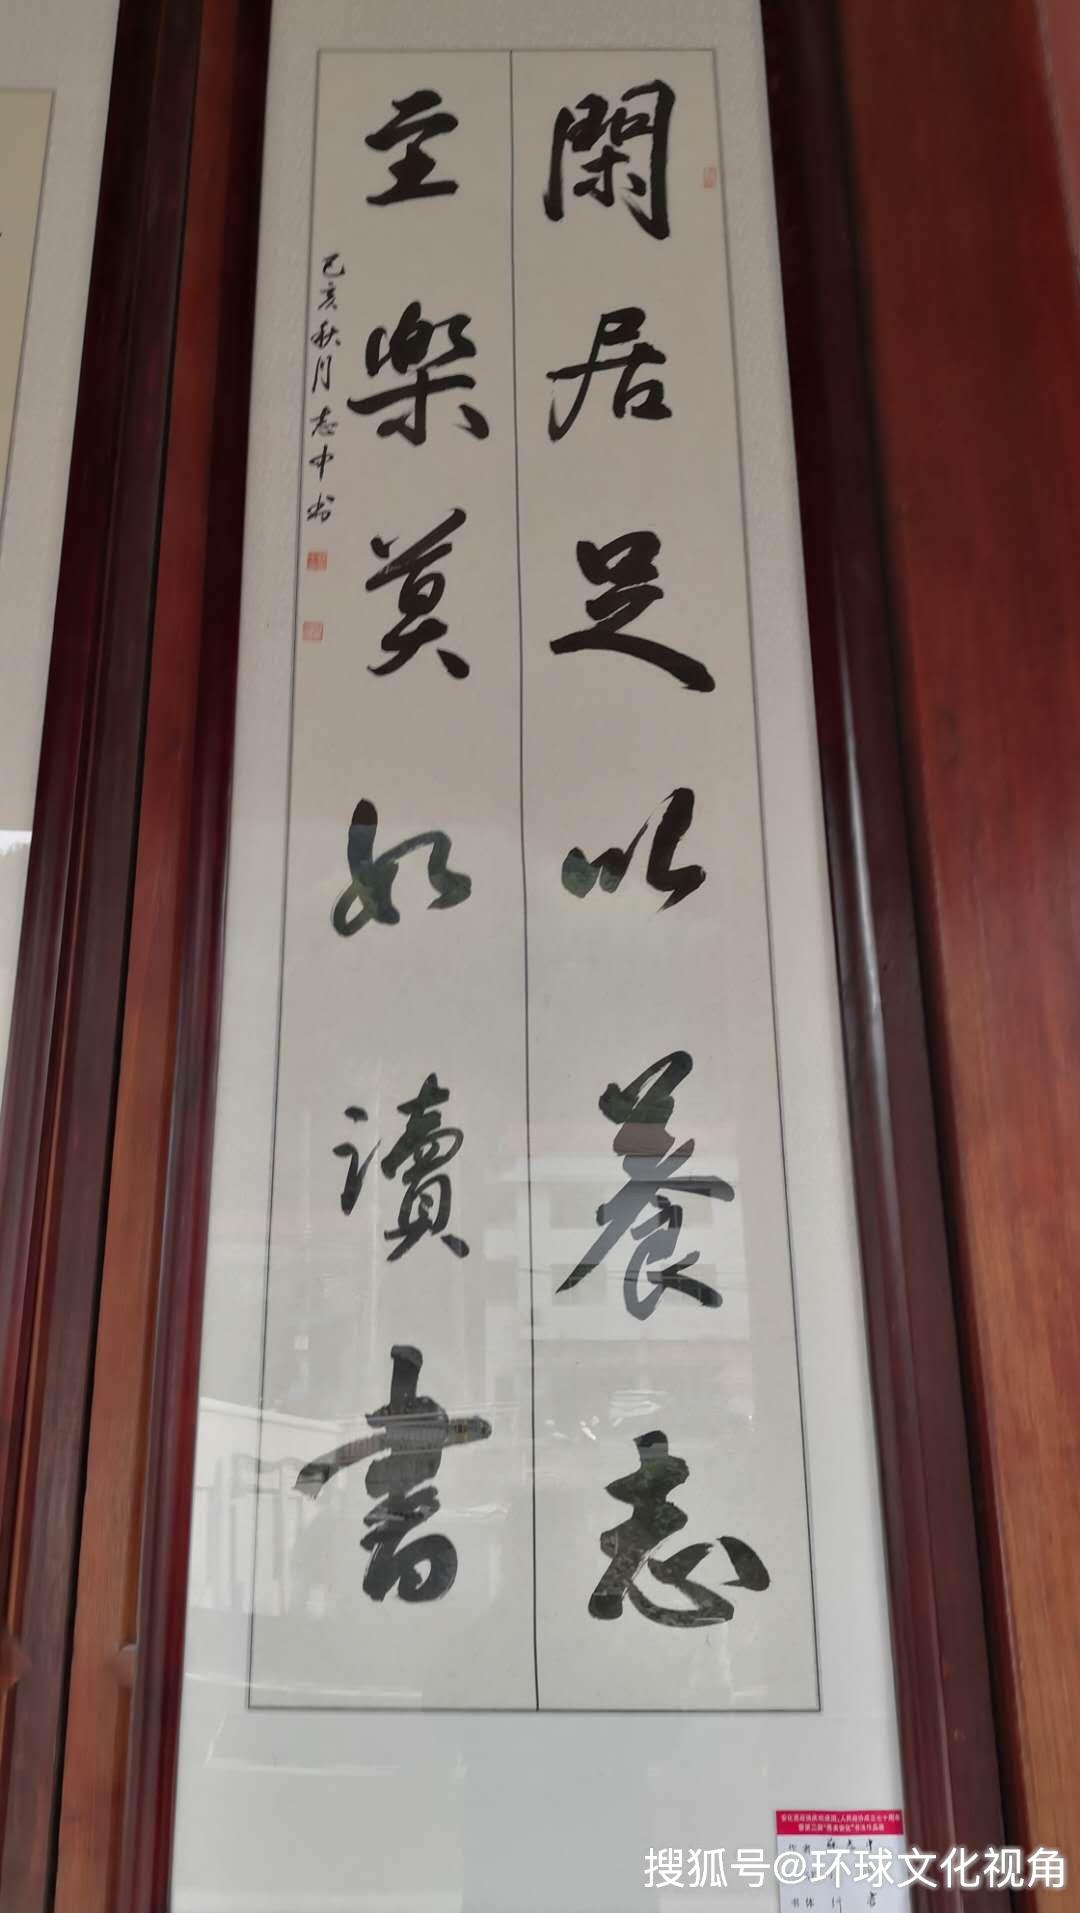 閑居足以養志
至樂莫如讀書
己亥秋月志中书
搜狐号@环球文化视角